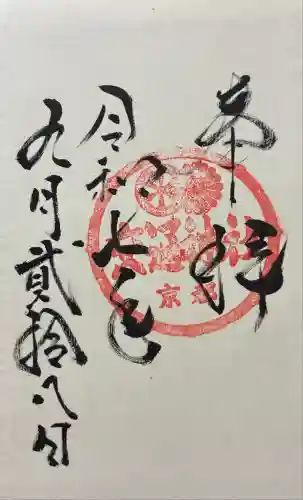 奉拝
令和七年
九月貳拾八日
京都